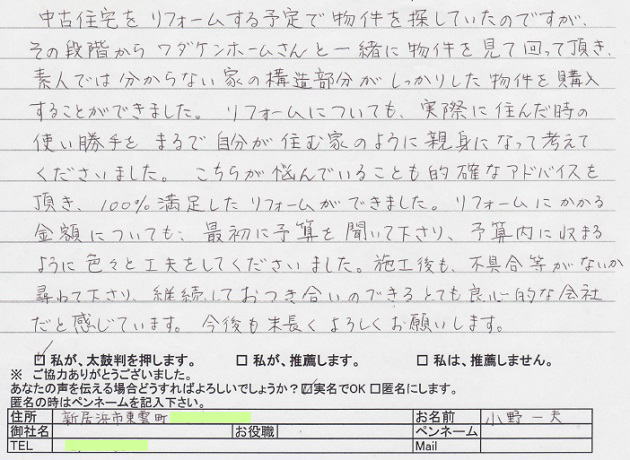 中古住宅をリフォームする予定で物件を探していたのですが、
その段階からワダケンホームさんと一緒に物件を見て回って頂き、
素人では分からない家の構造部分がしっかりした物件を購入
することができました。リフォームについても、実際に住んだ時の
使い勝手をまるで自分が住む家のように親身になって考えて
くださいました。こちらが悩んでいることも的確なアドバイスを
頂き、100%満足したリフォームができました。リフォームにかかる
金額についても、最初に予算を聞いて下さり、予算内に収まる
ように色々と工夫をしてくださいました。施工後も、不具合等がないか
尋ねて下さり、継続しておつき合いのできるとても良心的な会社
だと感じています。今後も末長くよろしくお願いします。
☑ 私が、太鼓判を押します。 □ 私が、推薦します。 □ 私は、推薦しません。
※ ご協力ありがとうございました。
あなたの声を伝える場合どうすればよろしいでしょうか？☑実名でOK □匿名にします。
匿名の時はペンネームを記入下さい。
住所 新居浜市東雲町 お名前 小野 一夫
御社名 お役職 ペンネーム
TEL Mail